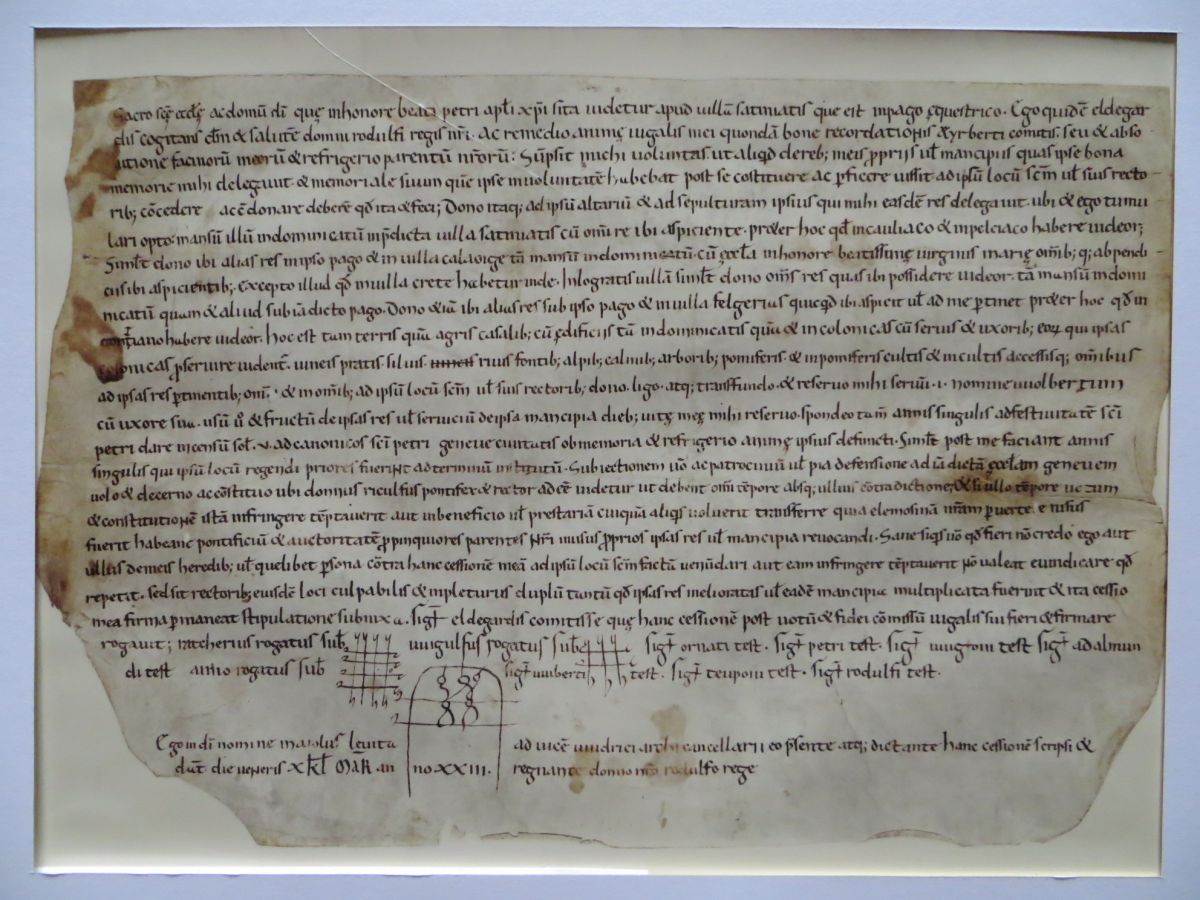 Sacro scē eccłę ac domū dī quę in honore beati petri apłi xp̄i sita uidetur apud uillā satiniatis que est in pago equestrico. Ego quidē eldegar
dis cogitans dm̄ & salutē domni rodulfi regis nr̄i. Ac remediū animę iugalis mei quondā bone recordationis Ayrberti comitis. seu & abso
lutione facinorū meorū & refrigerio parentū nr̄orū: Sūpsit michi voluntas. ut aliqd dereb; meis p̄prijs uł mancipiis quas ipse bona
memorie mihi delegauit. & memoriale suum quē ipse in uoluntatē habebat post se cōstituere ac p̄ficere iussit ad ipsū locū scm̄ uł suis recto
rib; cōcedere ac cōdonare deberē qd̄ ita & feci; Dono itaq; ad ipsū altariū & ad sepulturam ipsius qui mihi easdē res delegauit. ubi & ego tumu
lari opto. mansū illū indominicatū in p̄dicta uilla satiniatis cū om̄i re ibi aspiciente. pr&er hoc qd̄ in cauliaco & in pelciaco habere uideor;
Simłt dono ibi alias res in ipso pago & in uilla calaoige tū mansū indominicatū cū eccła in honore beatissimę uirginis marię om̄ib; q; ab pendi
ciis ibi aspicientib;. excepto illud qd̄ in uilla crete habetur inde. In logratis uillā simłt dono om̄s res quas ibi possidere uideor. tā mansū indomi
nicatū quam & aliud sub iā dicto pago. Dono &iā ibi alias res sub ipso pago & in uilla felgerias quicqd̄ ibi aspicit uł ad me p̄tinet pr&er hoc qd̄ in
habere uideor. hoc est tam terris quā agris casalib; cū ędificiis tā indominicatis quā & in colonicas cū seruis & uxorib; eorum qui ipsas
colonicas p̄seruire uident̄. uineis pratis. siluis. riuis fontib; alpib; calmib; arborib; pomiferis. & inpomiferis cultis & incultis accessisq; om̄ibus
ad ipsas res p̄tinentib; om̄. & in om̄ib; ad ipsū locū scm̄ uł suis rectorib; dono. ligo. atq; transfundo. & reseruo mihi seruū .i. nomine uuolbertum
cū uxore sua. usū ū & fructū de ipsas res uł seruiciū de ipsa mancipia dieb; uitę meę mihi reseruo. spondeo tam̄ annis singulis ad festiuitatē scī
petri dare in censū sol̄. v. ad canonicos scī petri geneue ciuitatis ob memoria & refrigerio animę ipsius defuncti. Simłt post me faciant annis
singulis qui ipsū locū regendi priores fuerint ad terminū institutū. Subiectionem uō ac patrociniū uł pia defensione ad iā dictā eccłam geneuem
uolo & decerno ac cōstituo ubi domnus riculfus pontifex & rector adēē uidetur ut debent om̄i tēpore absq; ullius cōtradictione; & si ullo tēpore
& constitutionē istā infringere tēptauerit aut in beneficio uł prestariā cuiquā aliqs uoluerit transferre quia elemosinā
fuerit habeant pontificiū & auctoritatē p̄pinquiores parentes nr̄i in usus p̄prios ipsas res uł mancipia reuocandi. Sane siqs uō qd̄ fieri nō credo ego aut
ullus de meis heredib; uł quelibet p̄sona cōtra hanc cessionē meā ad ipsū locū scm̄ factū uenūdari aut eam infringere tēptauerit nō ualeat euindicare qd̄
repetit. sed sit rectorib; eiusdē loci culpabilis & inpleturus duplū tantū qd̄ ipsas res melioratas uł eadē mancipia multiplicata fuerint & ita cessio
mea firma p̄maneat stipulatione subnixa. Sigt̄ eldegardis comitisse quę hanc cessionē post uotū & fidei cōmissū iugalis sui fieri & firmare
rogauit; ratcherius rogatus subƀ uuigulfus rogatus subƀ Sigt̄ ornati test. Sigt̄ petri test. Sigt̄ uuigoni test Sigt̄ adalmun
di test aimo rogatus subƀ sigt̄ uuiberti test. Sigt̄ teuponi test. Sigt̄ rodulfi test.
Ego in dī nomine maiolus leuita ad uicē uuidrici archicancellarii eo p̄sente atq; dictante hanc cessionē scripsi &
dat̄ die ueneris x kł mar̄ an no xxiii. regnante domno nr̄o rodulfo rege